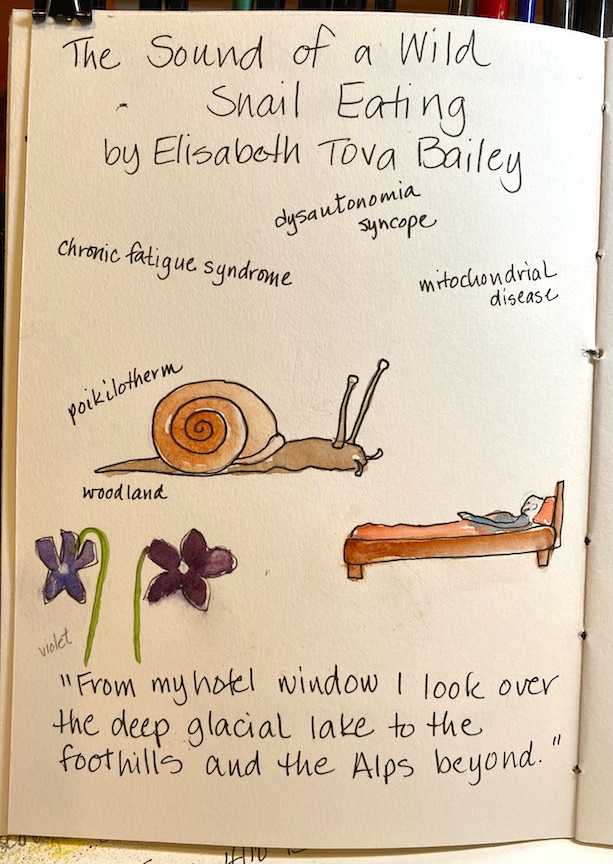 The Sound of a Wild
Snail Eating
by Elisabeth Tova Bailey
dysautonomia
syncope
chronic fatigue syndrome
mitochondrial
disease
poikilotherm
woodland
violet
"From my hotel window I look over
the deep glacial lake to the
foothills and the Alps beyond."